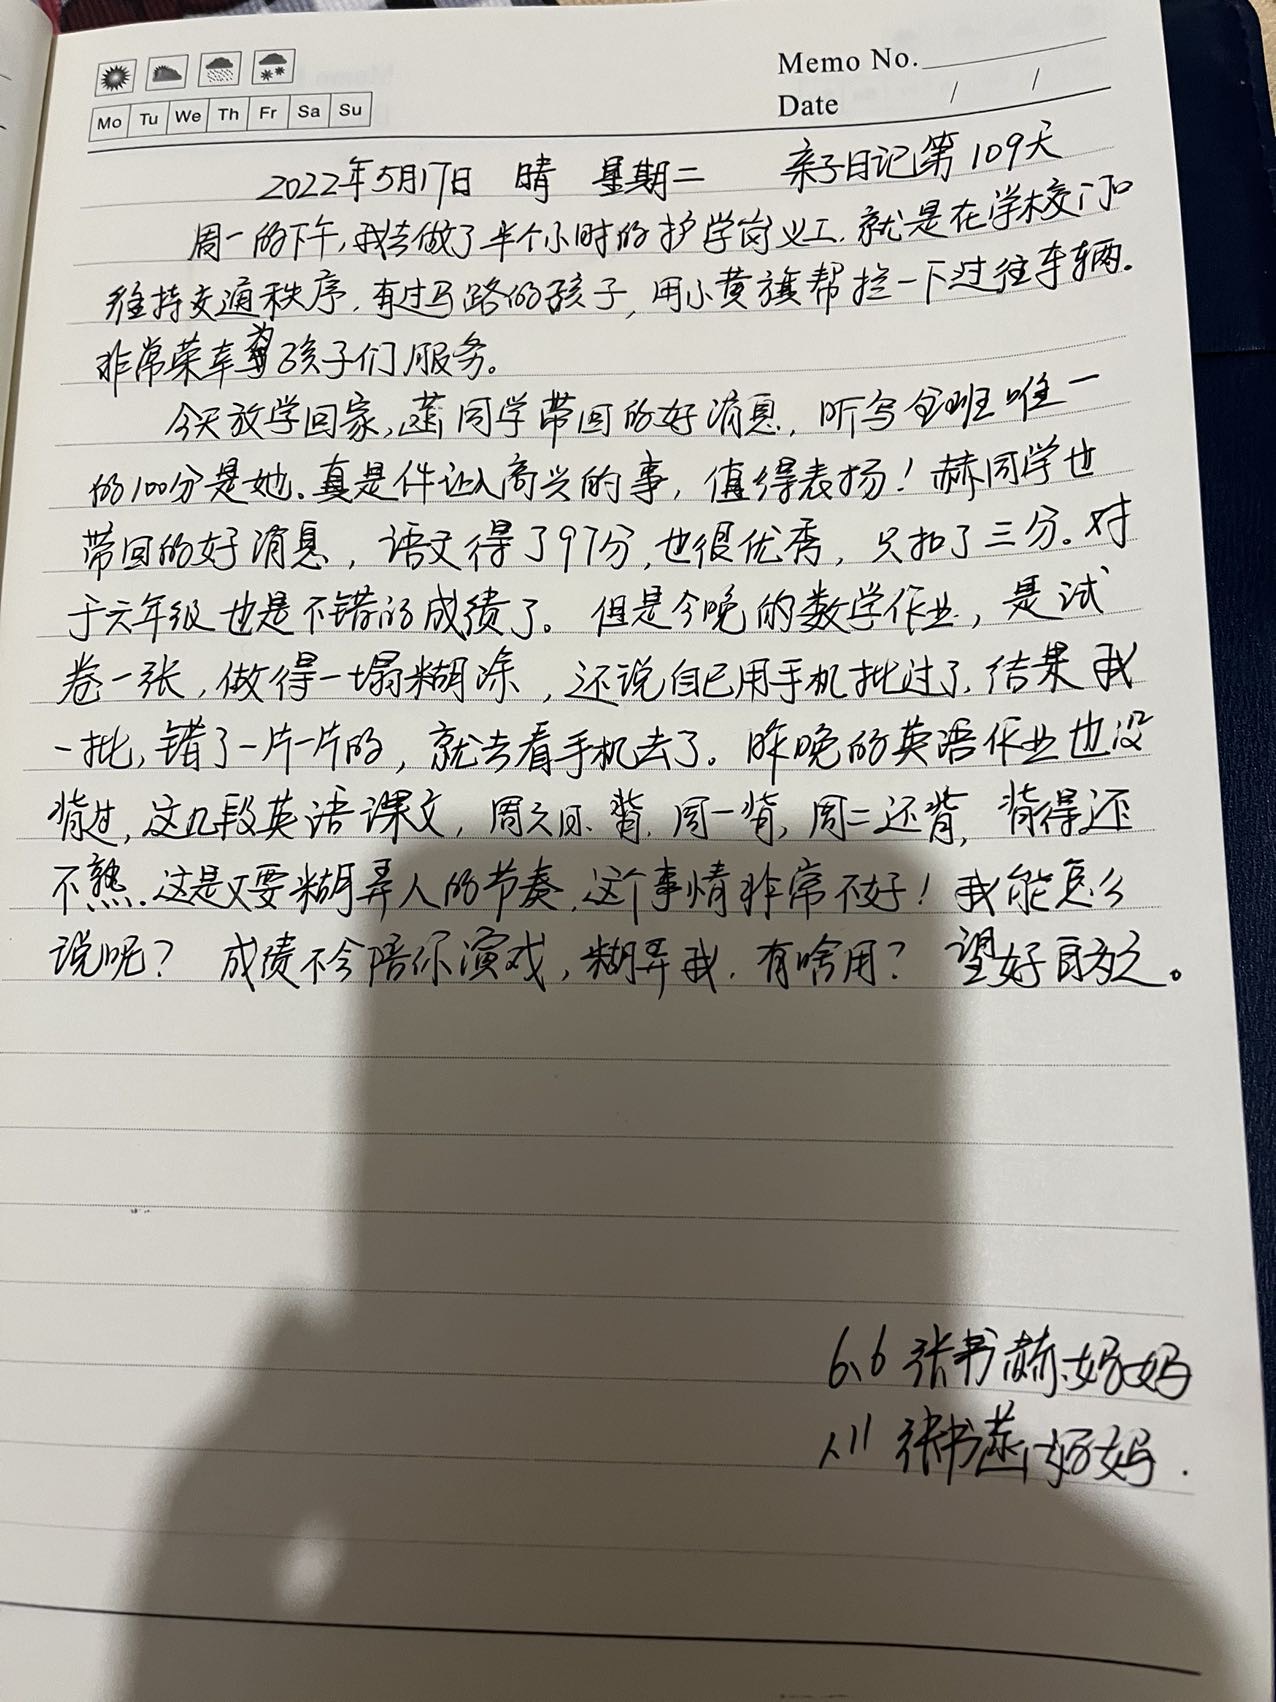 Memo No.
Mo Tu We Th Fr Sa Su
Date / /
2022年5月17日 晴 星期二 亲子日记第109天
周一的下午,我去做了半个小时的护学岗义工.就是在学校门口
维持交通秩序.有过马路的孩子,用小黄旗帮拦一下过往车辆.
非常荣幸为孩子们服务。
今天放学回家,菡同学带回的好消息,听写全班唯一
的100分是她。真是件让人高兴的事,值得表扬!赫同学也
带回的好消息,语文得了97分,也很优秀,只扣了三分。对
于六年级也是不错的成绩了。但是今晚的数学作业,是试
卷一张,做得一塌糊涂,还说自己用手机批过了,结果我
一批,错了一片一片的,就去看手机去了。昨晚的英语作业也没
背过,这几段英语课文,周天日.背,周一背,周二还背,背得还
不熟.这是又要糊弄人的节奏,这个事情非常不好!我能怎么
说呢?成绩不会陪你演戏,糊弄我.有啥用?望好自为之。
6.6 张书赫妈妈
张书菡妈妈.